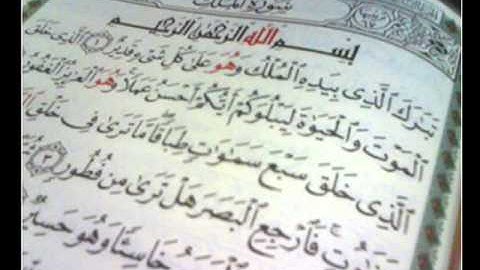 سورة الملك
بسم الله الرحمن الرحيم
تَبَٰرَكَ الَّذِى بِيَدِهِ الْمُلْكُ وَهُوَ عَلَىٰ كُلِّ شَىْءٍ قَدِيرٌ ١ الَّذِى خَلَقَ
الْمَوْتَ وَالْحَيَوٰةَ لِيَبْلُوَكُمْ أَيُّكُمْ أَحْسَنُ عَمَلًا وَهُوَ الْعَزِيزُ الْغَفُورُ
الَّذِى خَلَقَ سَبْعَ سَمَٰوَٰتٍ طِبَاقًا مَّا تَرَىٰ فِى خَلْقِ
فَارْجِعِ الْبَصَرَ هَلْ تَرَىٰ مِن فُطُورٍ ٣
الْبَصَرُ خَاسِئًا وَهُوَ حَسِيرٌ